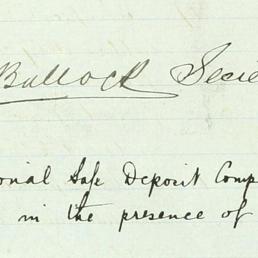 Bullock Secre
onal Safe Deposit Comp
in the presence of